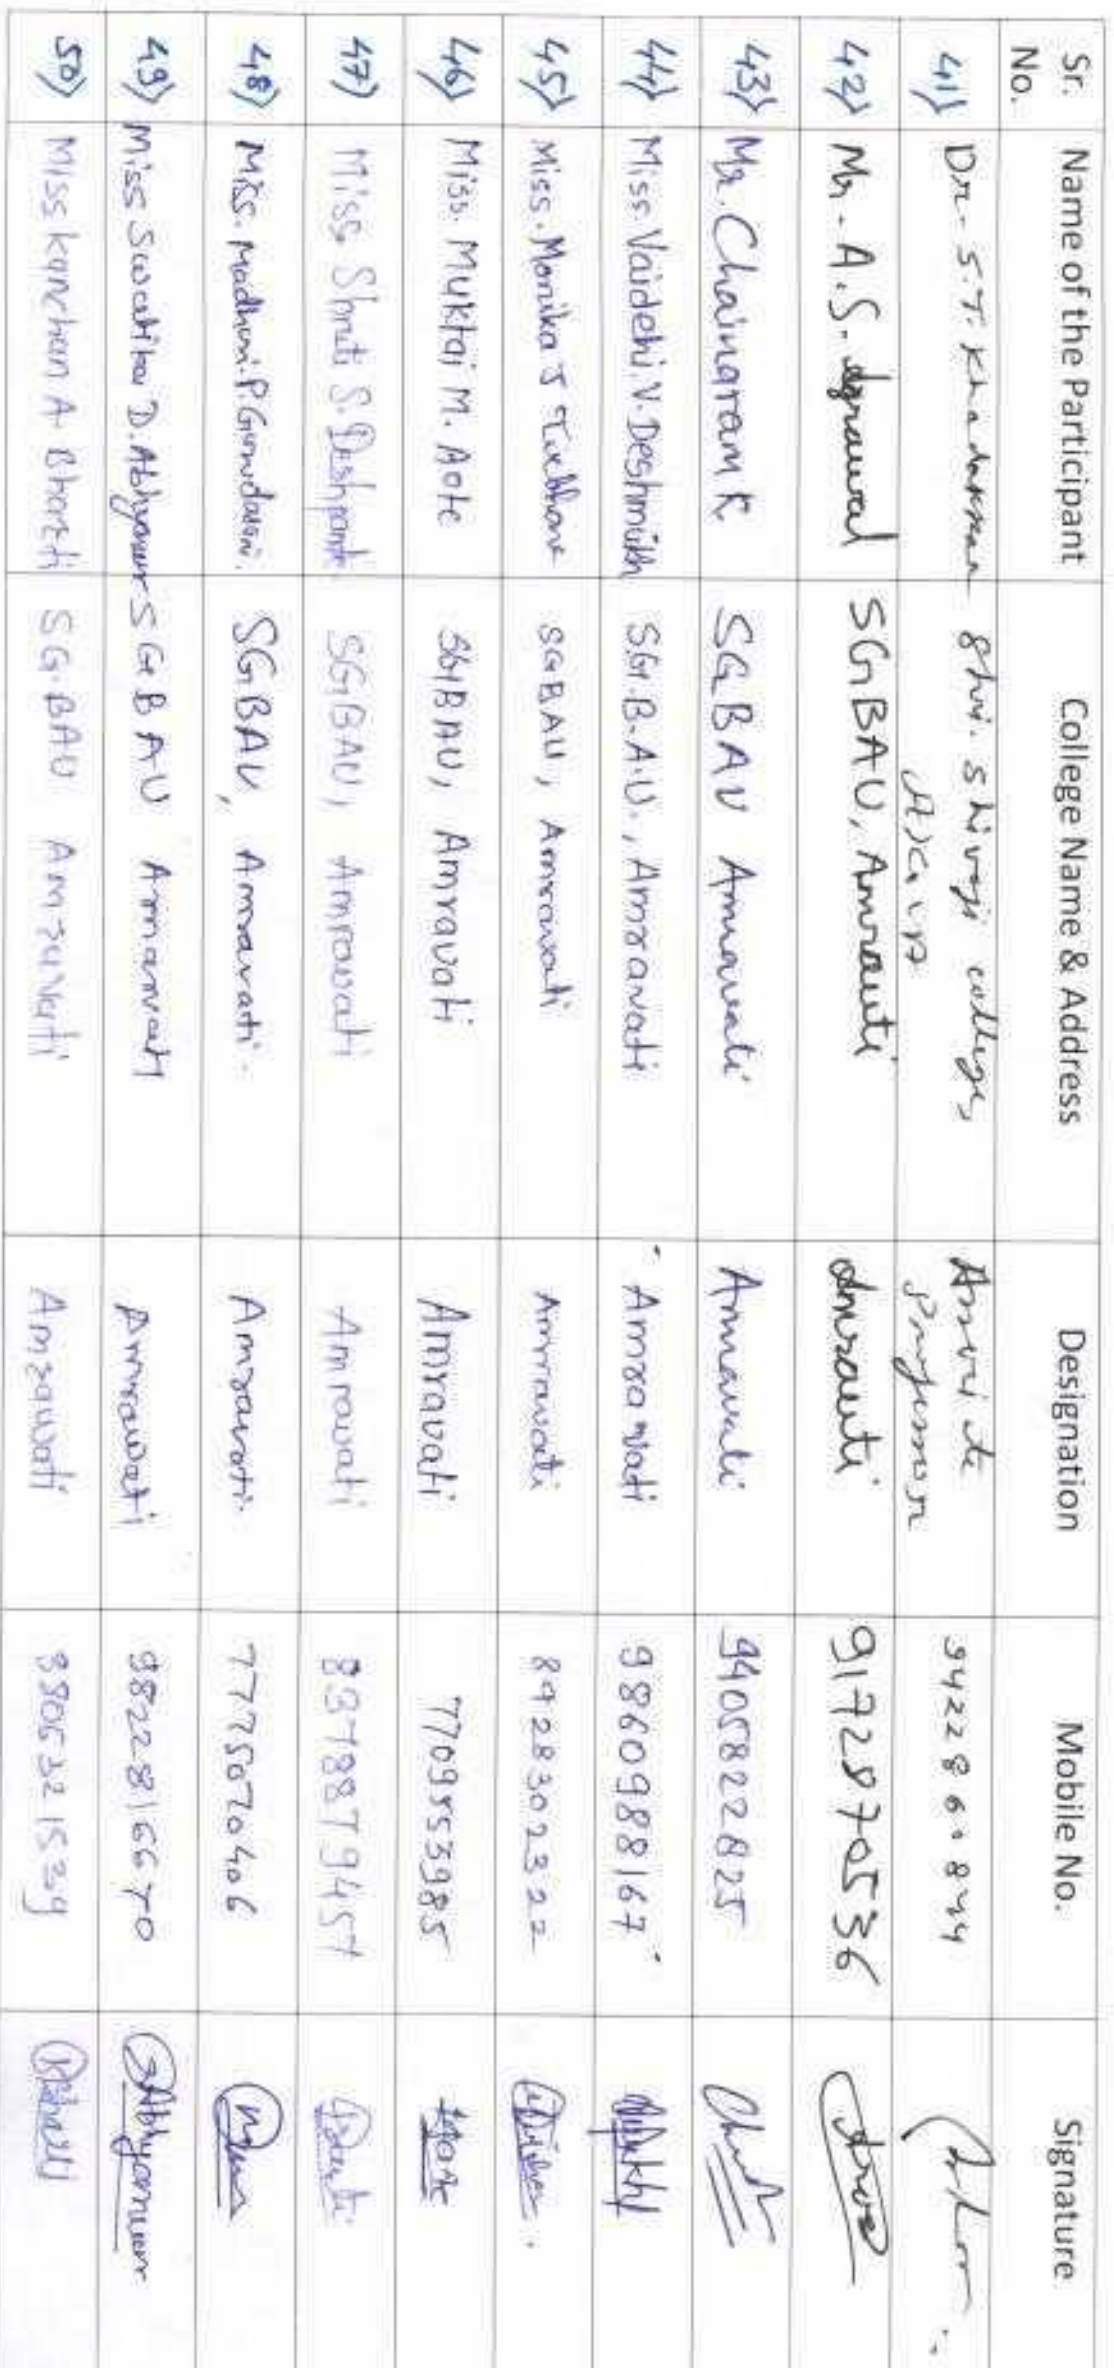 Sr. No. Name of the Participant College Name & Address Designation Mobile No. Signature
41) Dr. S.T. Shri. Shivaji college, 9422860844
Akola
42) Mr. A.S. Agrawal SGBAU, Amravati Amravati 9172870536
43) Mr. Chainaram K. SGBAU Amravati Amravati 9405822825
44) Miss. Vaidehi. V. Deshmukh S.G.B.A.U., Amravati Amravati 9860988167
45) Miss. Monika J SGBAU, Amravati Amravati 8928302322
46) Miss. Muktai M. Aote SGBAU, Amravati Amravati 7709553985
47) Miss. Shruti S. Deshpande SGBAU, Amrawati Amrawati
48) Miss. Madhuri. P. SGBAU, Amravati. Amravati. 7775072406
49) Miss D. Abhyankar SGBAU Amravati Amrawati 9822816670
50) Miss kanchan A. Bharti SG.BAU Amravati Amrawati